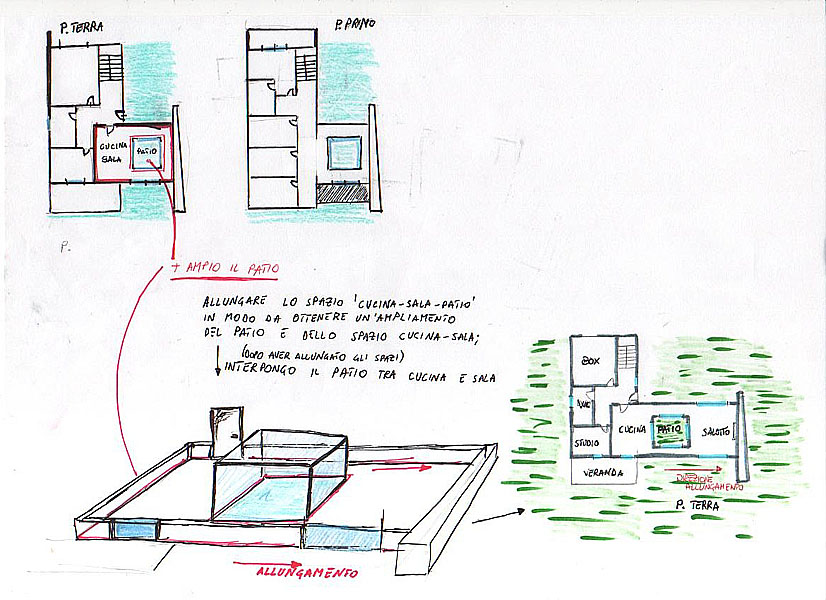 P. TERRA
P. PRIMO
CUCINA
SALA
PATIO
P.
+ AMPIO IL PATIO
ALLUNGARE LO SPAZIO 'CUCINA-SALA-PATIO'
IN MODO DA OTTENERE UN'AMPLIAMENTO
DEL PATIO E DELLO SPAZIO CUCINA-SALA;
(DOPO AVER ALLUNGATO GLI SPAZI)
INTERPONGO IL PATIO TRA CUCINA E SALA
BOX
CUCINA
PATIO
SALOTTO
STUDIO
VERANDA
DIREZIONE
ALLUNGAMENTO
P. TERRA
ALLUNGAMENTO